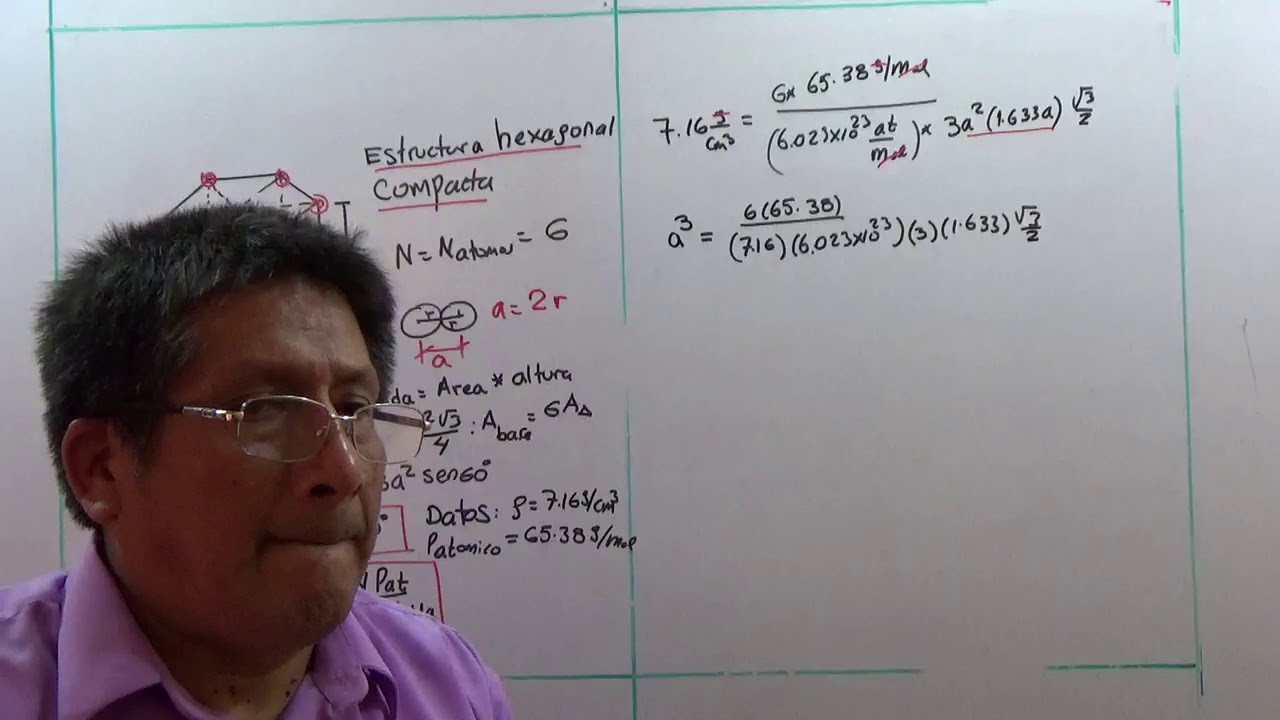 Estructura hexagonal
Compacta
N = Natomos = 6
r r
a = 2r
a
da = Area * altura
²√3/4 : Abase = 6A△
a² sen60°
Datos: ρ = 7.16g/cm³
Patomico = 65.38g/mol
Pat
7.16 g/cm³ = 6* 65.38g/mol / (6.023x10²³ at/mol)* 3a² (1.633a) √3/2
a³ = 6(65.38) / (7.16)(6.023x10²³)(3)(1.633) √3/2